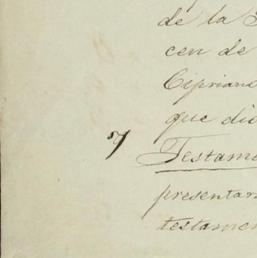 de la
cen de
Cipriano
que di
7 Testame
presentar
testamen